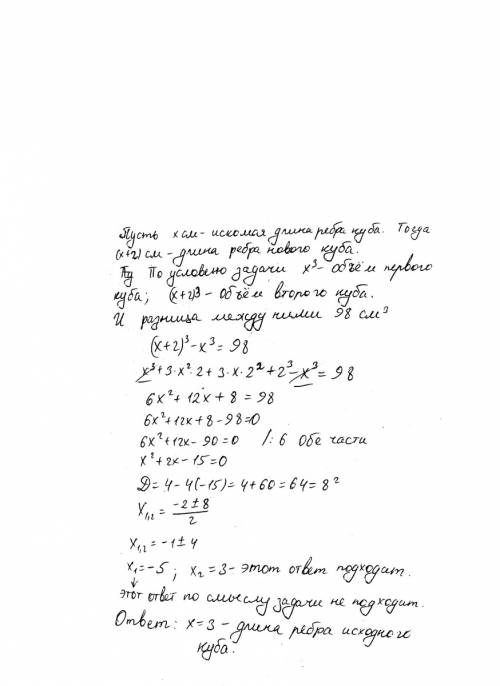 Пусть x см - искомая длина ребра куба. Тогда
(x+2) см - длина ребра нового куба.
По условию задачи x³ - объём первого
куба; (x+2)³ - объём второго куба.
И разница между ними 98 см³
(x+2)³ - x³ = 98
x³ + 3·x²·2 + 3·x·2² + 2³ - x³ = 98
6x² + 12x + 8 = 98
6x² + 12x + 8 - 98 = 0
6x² + 12x - 90 = 0 /: 6 Обе части
x² + 2x - 15 = 0
D = 4 - 4(-15) = 4 + 60 = 64 = 8²
X₁,₂ = (-2 ± 8)/2
X₁,₂ = -1 ± 4
x₁ = -5 ; x₂ = 3 - этот ответ подходит.
↓
этот ответ по смыслу задачи не подходит.
Ответ: x = 3 - длина ребра исходного
куба.